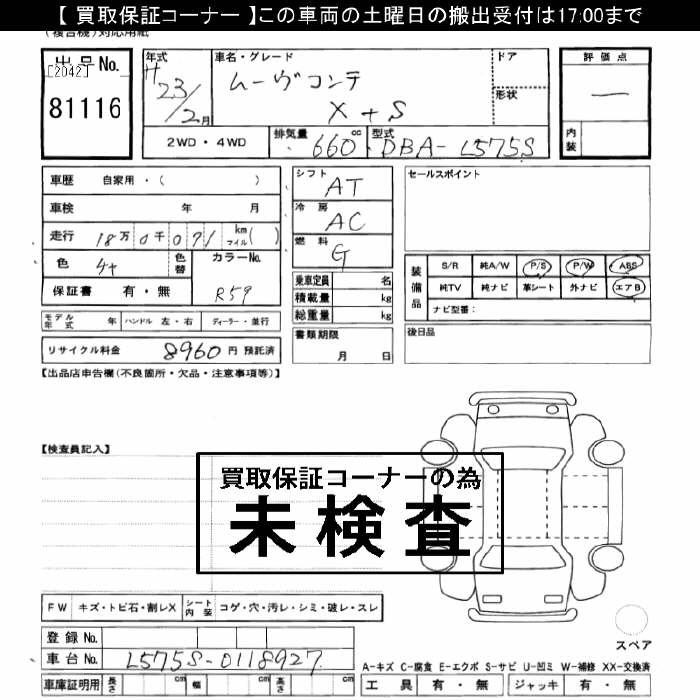 【 買取保証コーナー 】この車両の土曜日の搬出受付は17:00まで
(複合機)対応用紙
出品No.
[2042]
81116
年式
H23/2月
車名・グレード
ムーヴコンテ
X+S
ドア
形状
評価点
―
内装
2WD・4WD
排気量 660 cc
型式 DBA-L575S
車歴 自家用・( )
車検 年 月
走行 18万0千071 km マイル( )
色
色替
カラーNo.
R59
保証書 有・無
シフト AT
冷房 AC
燃料 G
乗車定員 名
積載量 kg
総重量 kg
セールスポイント
装備品
S/R 純A/W P/S P/W ABS
純TV 純ナビ 革シート 外ナビ エアB
ナビ型番:
モデル年式 年 ハンドル 左・右 ディーラー・並行
リサイクル料金 8960円 預託済
書類期限
月 日
後日品
【出品店申告欄(不良箇所・欠品・注意事項等)】
【検査員記入】
買取保証コーナーの為
未検査
FW キズ・トビ石・割レX シート内装 コゲ・穴・汚レ・シミ・破レ・スレ
スペア
登録No.
車台No. L575S-0118927
A-キズ C-腐食 E-エクボ S-サビ U-凹ミ W-補修 XX-交換済
車庫証明用 長さ cm 幅 cm 高さ cm
工具 有・無 ジャッキ 有・無